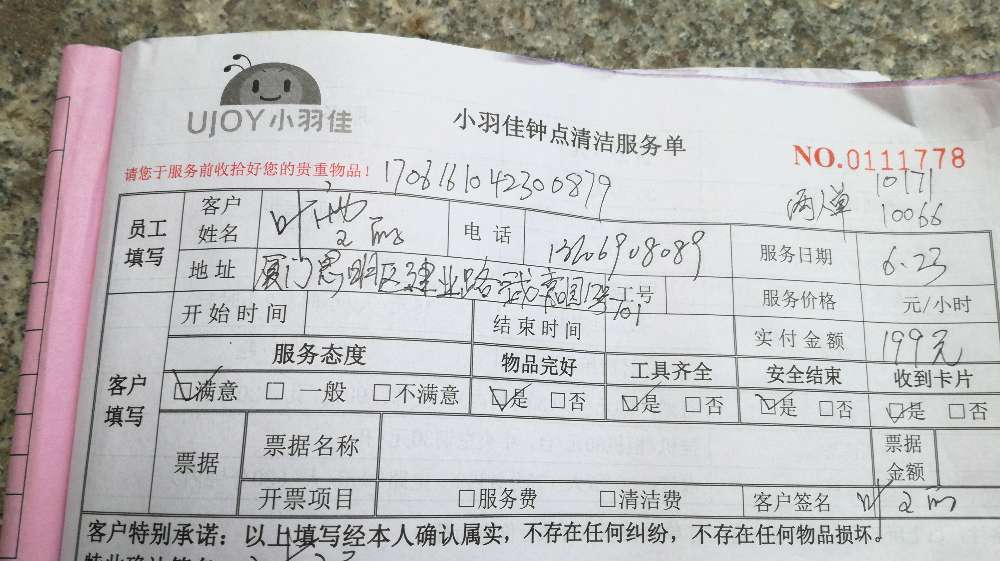 UJOY小羽佳
小羽佳钟点清洁服务单
NO.0111778
请您于服务前收拾好您的贵重物品!
1706161042300879
两人单 10171
10066
员工填写 客户姓名 叶 电话 13606908089 服务日期 6.23
地址 厦门思明区建业路 工号 服务价格 元/小时
客户填写 开始时间 结束时间 实付金额 199元
服务态度 物品完好 工具齐全 安全结束 收到卡片
☑满意 □一般 □不满意 ☑是 □否 ☑是 □否 ☑是 □否 ☑是 □否
票据 票据名称 票据金额
开票项目 □服务费 □清洁费 客户签名 叶
客户特别承诺:以上填写经本人确认属实,不存在任何纠纷,不存在任何物品损坏。